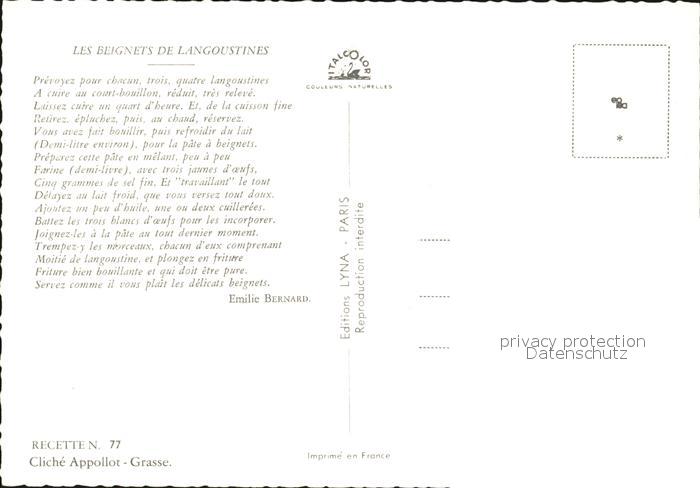 LES BEIGNETS DE LANGOUSTINES
Prévoyez pour chacun, trois, quatre langoustines
A cuire au court-bouillon, réduit, très relevé.
Laissez cuire un quart d'heure. Et, de la cuisson fine
Retirez, épluchez, puis, au chaud, réservez.
Vous avez fait bouillir, puis refroidir du lait
(Demi-litre environ), pour la pâte à beignets.
Préparez cette pâte en mêlant, peu à peu
Farine (demi-livre), avec trois jaunes d'œufs,
Cinq grammes de sel fin. Et "travaillant" le tout
Délayez au lait froid, que vous versez tout doux.
Ajoutez un peu d'huile, une ou deux cuillerées.
Battez les trois blancs d'œufs pour les incorporer.
Joignez-les à la pâte au tout dernier moment.
Trempez-y les morceaux, chacun d'eux comprenant
Moitié de langoustine, et plongez en friture
Friture bien bouillante et qui doit être pure.
Servez comme il vous plaît les délicats beignets.
Emilie BERNARD.
RECETTE N. 77
Cliché Appollot - Grasse.
ITALCOLOR
COULEURS NATURELLES
Editions LYNA - PARIS
Reproduction interdite
Imprimé en France
*
privacy protection
Datenschutz